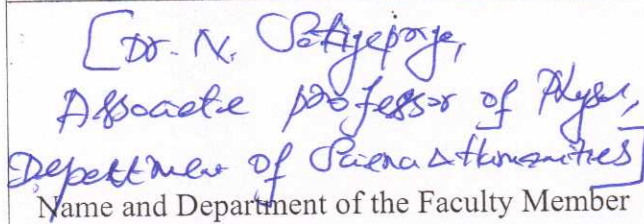 [Dr. N. Sathyapriya,
Associate professor of Physics,
Department of Science & Humanities]
Name and Department of the Faculty Member